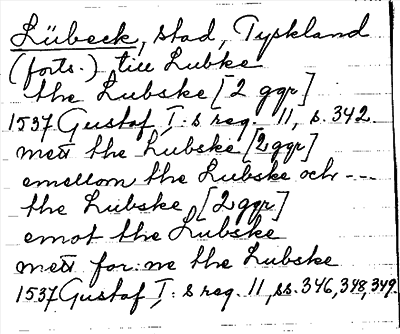 Lübeck, stad, Tyskland
(forts.) till Lubke
the Lubske [2 ggr]
1537 Gustaf I:s reg. 11, s. 342.
mett the Lubske [2 ggr]
emellom the Lubske och ---
the Lubske [2 ggr]
emot the Lubske
mett for:ne the Lubske
1537 Gustaf I:s reg. 11, ss. 346, 348, 349.